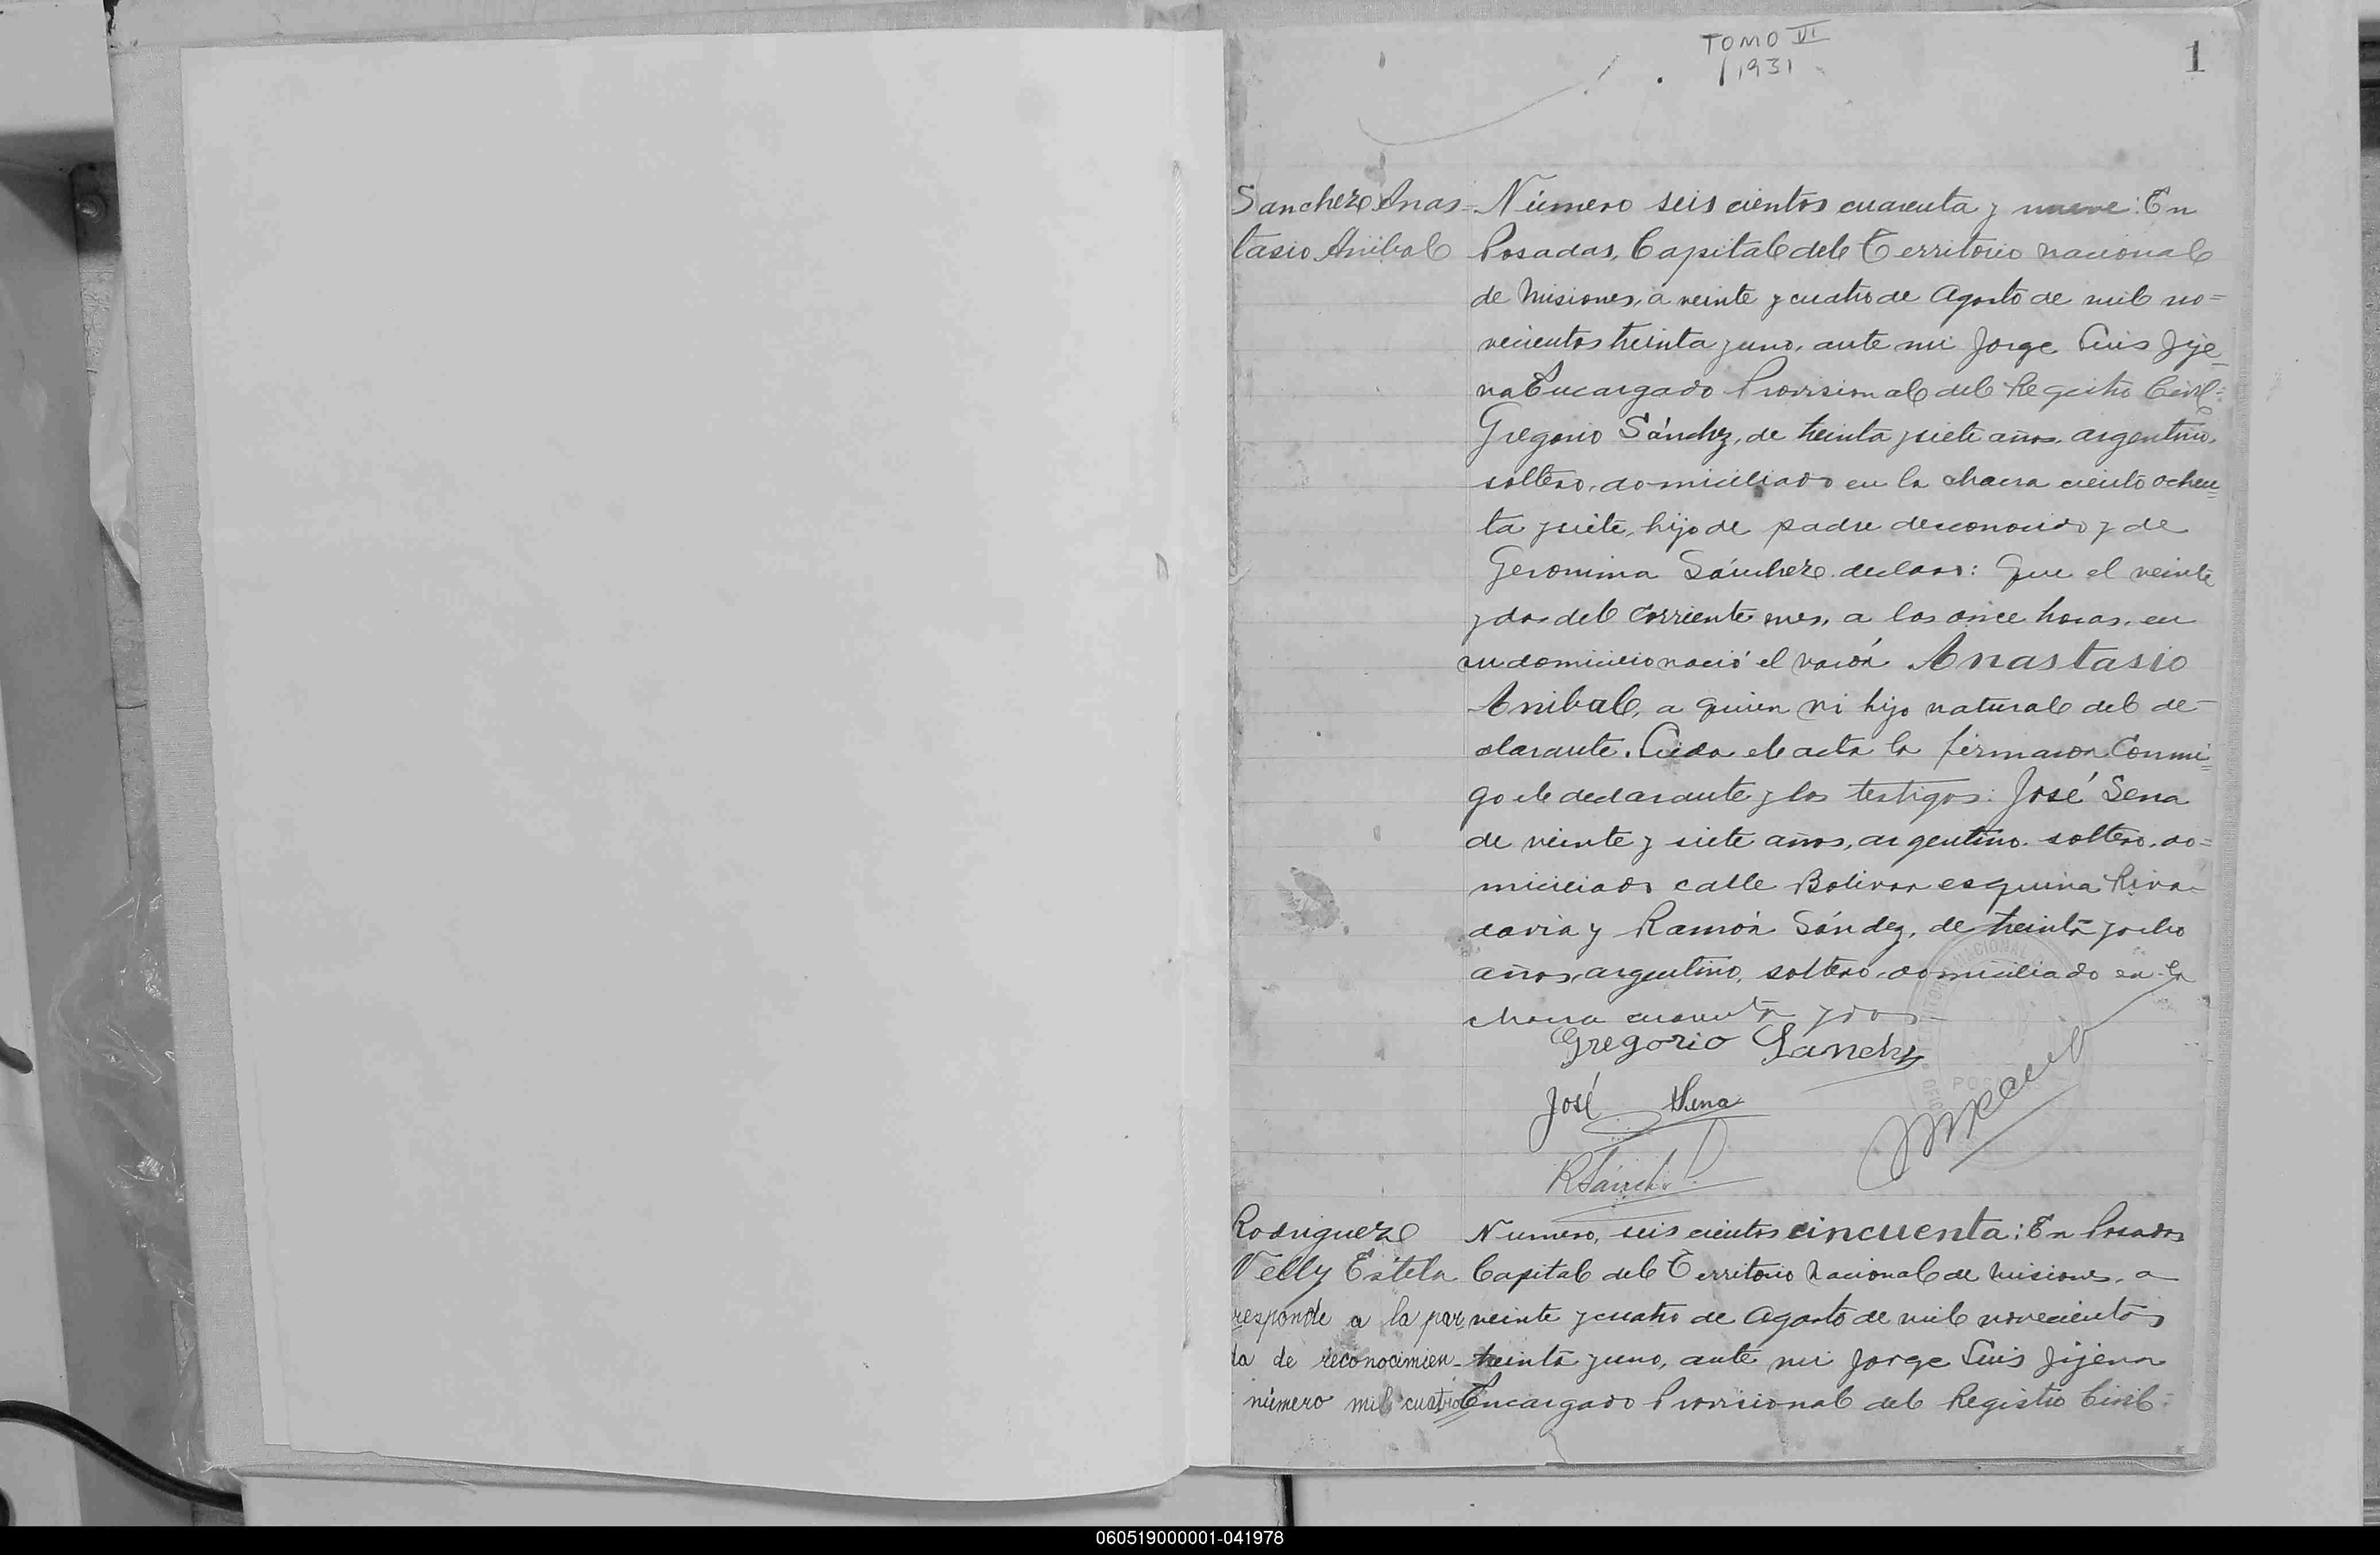 TOMO VI
1931
1
Sanchez Anas=
tasio Anibal
Número seis cientos cuarenta y nueve: En
Posadas, Capital del Territorio nacional
de Misiones, a veinte y cuatro de Agosto de mil no=
vecientos treinta y uno, ante mi Jorge Luis Jije_
na Encargado Provisional del Registro Civil=
Gregorio Sánchez, de treinta y siete años, argentino,
soltero, domiciliado en la chacra ciento ochen=
ta y siete, hijo de padre desconocido y de
Geronima Sánchez declaró: Que el veinte
y dos del corriente mes, a las once horas, en
su domicilio nació el varón Anastasio
Anibal, a quien vi hijo natural del de-
clarante. Leida el acta la firmaron conmi=
go el declarante y los testigos: José Sena
de veinte y siete años, argentino, soltero, do=
miciliado calle Bolivar esquina Riva-
davia y Ramón Sández, de treinta y ocho
años, argentino, soltero, domiciliado en la
chacra cuarenta y dos
Gregorio Sanchz
José Sena
POS
Rodriguez
Velly Estela
responde a la par
da de reconocimien-
número mil cuatro
Numero, seis cientos cincuenta: En Posadas
Capital del Territorio Nacional de Misiones, a
veinte y cuatro de Agosto de mil novecientos
treinta y uno, ante mi Jorge Luis Jijena
Encargado Provisional del Registro Civil:
060519000001-041978